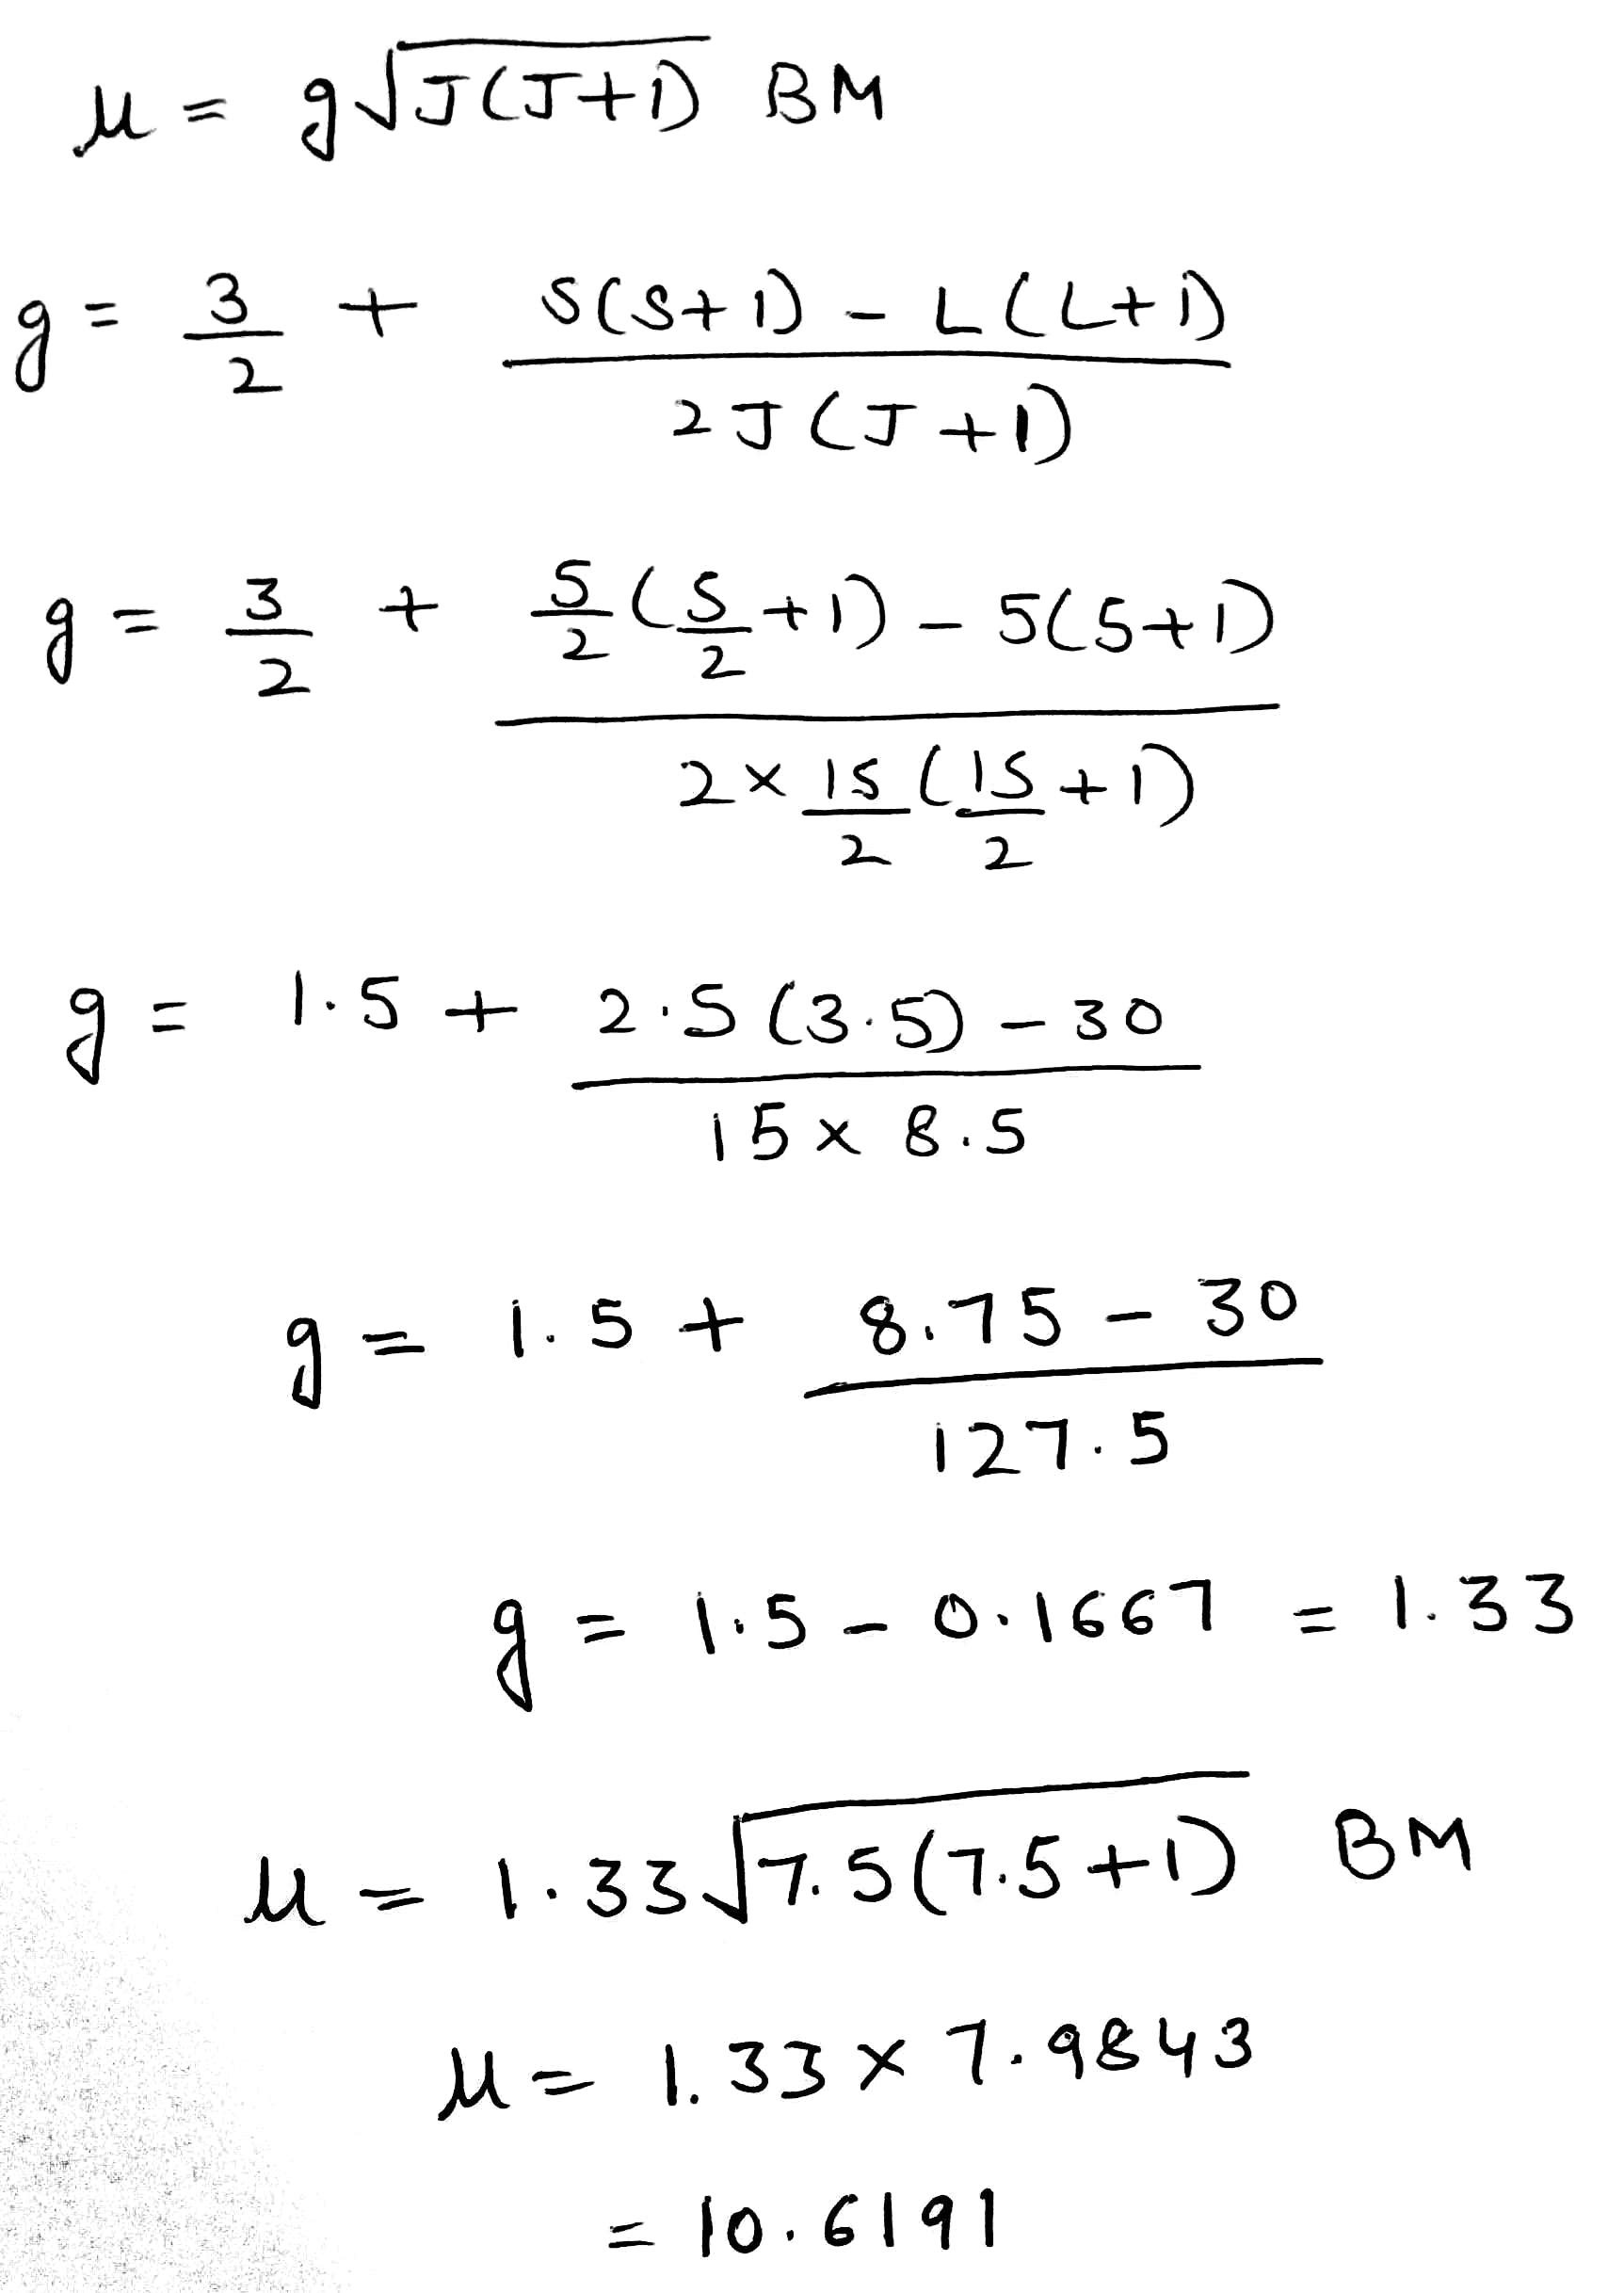 μ = g√J(J+1) BM
g = 3/2 + S(S+1) - L(L+1) / 2J(J+1)
g = 3/2 + 5/2 (5/2 +1) - 5(5+1) / 2 × 15/2 (15/2 +1)
g = 1.5 + 2.5 (3.5) - 30 / 15 × 8.5
g = 1.5 + 8.75 - 30 / 127.5
g = 1.5 - 0.1667 = 1.33
μ = 1.33 √7.5(7.5+1) BM
μ = 1.33 × 7.9843
= 10.6191